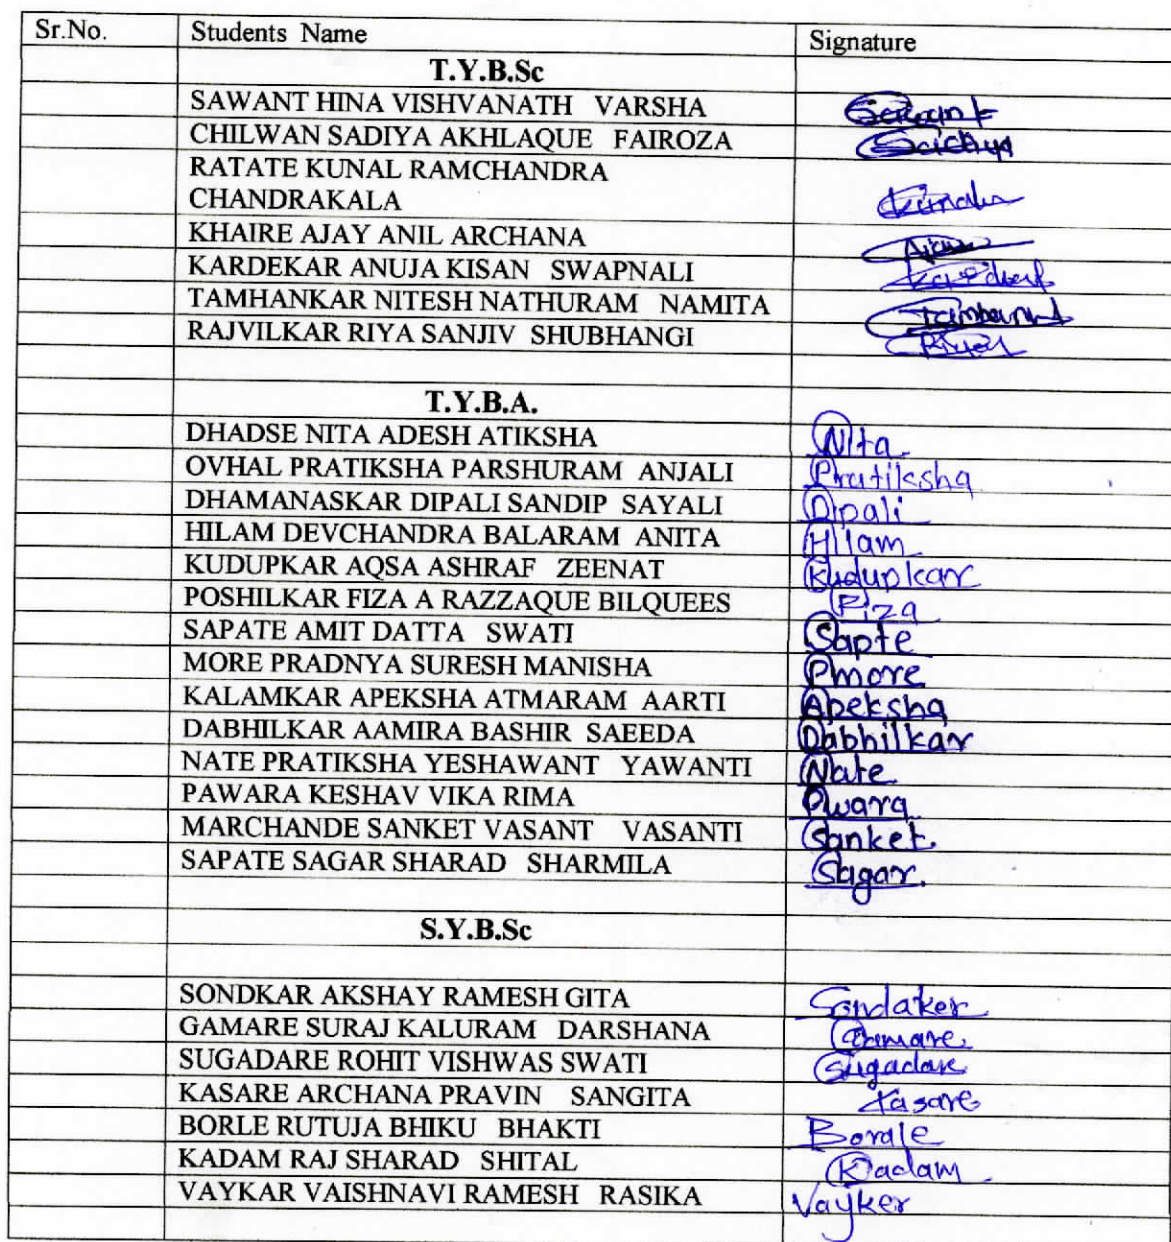 Sr.No. Students Name Signature
T.Y.B.Sc
SAWANT HINA VISHVANATH VARSHA Sawant
CHILWAN SADIYA AKHLAQUE FAIROZA
RATATE KUNAL RAMCHANDRA
CHANDRAKALA
KHAIRE AJAY ANIL ARCHANA
KARDEKAR ANUJA KISAN SWAPNALI
TAMHANKAR NITESH NATHURAM NAMITA
RAJVILKAR RIYA SANJIV SHUBHANGI
T.Y.B.A.
DHADSE NITA ADESH ATIKSHA Nita
OVHAL PRATIKSHA PARSHURAM ANJALI Pratiksha
DHAMANASKAR DIPALI SANDIP SAYALI Dipali
HILAM DEVCHANDRA BALARAM ANITA Hilam
KUDUPKAR AQSA ASHRAF ZEENAT Kudupkar
POSHILKAR FIZA A RAZZAQUE BILQUEES Fiza
SAPATE AMIT DATTA SWATI Sapte
MORE PRADNYA SURESH MANISHA Pmore
KALAMKAR APEKSHA ATMARAM AARTI Apeksha
DABHILKAR AAMIRA BASHIR SAEEDA Dabhilkar
NATE PRATIKSHA YESHAWANT YAWANTI Nate
PAWARA KESHAV VIKA RIMA Pwara
MARCHANDE SANKET VASANT VASANTI Sanket.
SAPATE SAGAR SHARAD SHARMILA Sagar.
S.Y.B.Sc
SONDKAR AKSHAY RAMESH GITA Sondaker
GAMARE SURAJ KALURAM DARSHANA Gamare
SUGADARE ROHIT VISHWAS SWATI Sugadare
KASARE ARCHANA PRAVIN SANGITA Kasare
BORLE RUTUJA BHIKU BHAKTI Borale
KADAM RAJ SHARAD SHITAL Kadam
VAYKAR VAISHNAVI RAMESH RASIKA Vayker